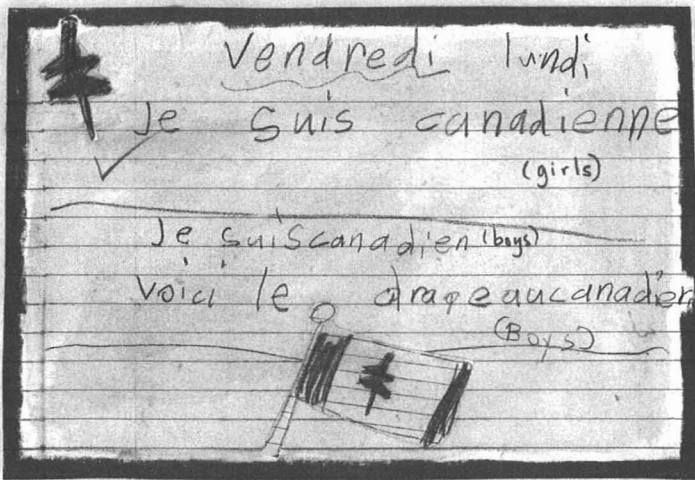 Vendredi lundi
Je suis canadienne
(girls)
Je suis canadien (boys)
Voici le drapeau canadien
(Boys)